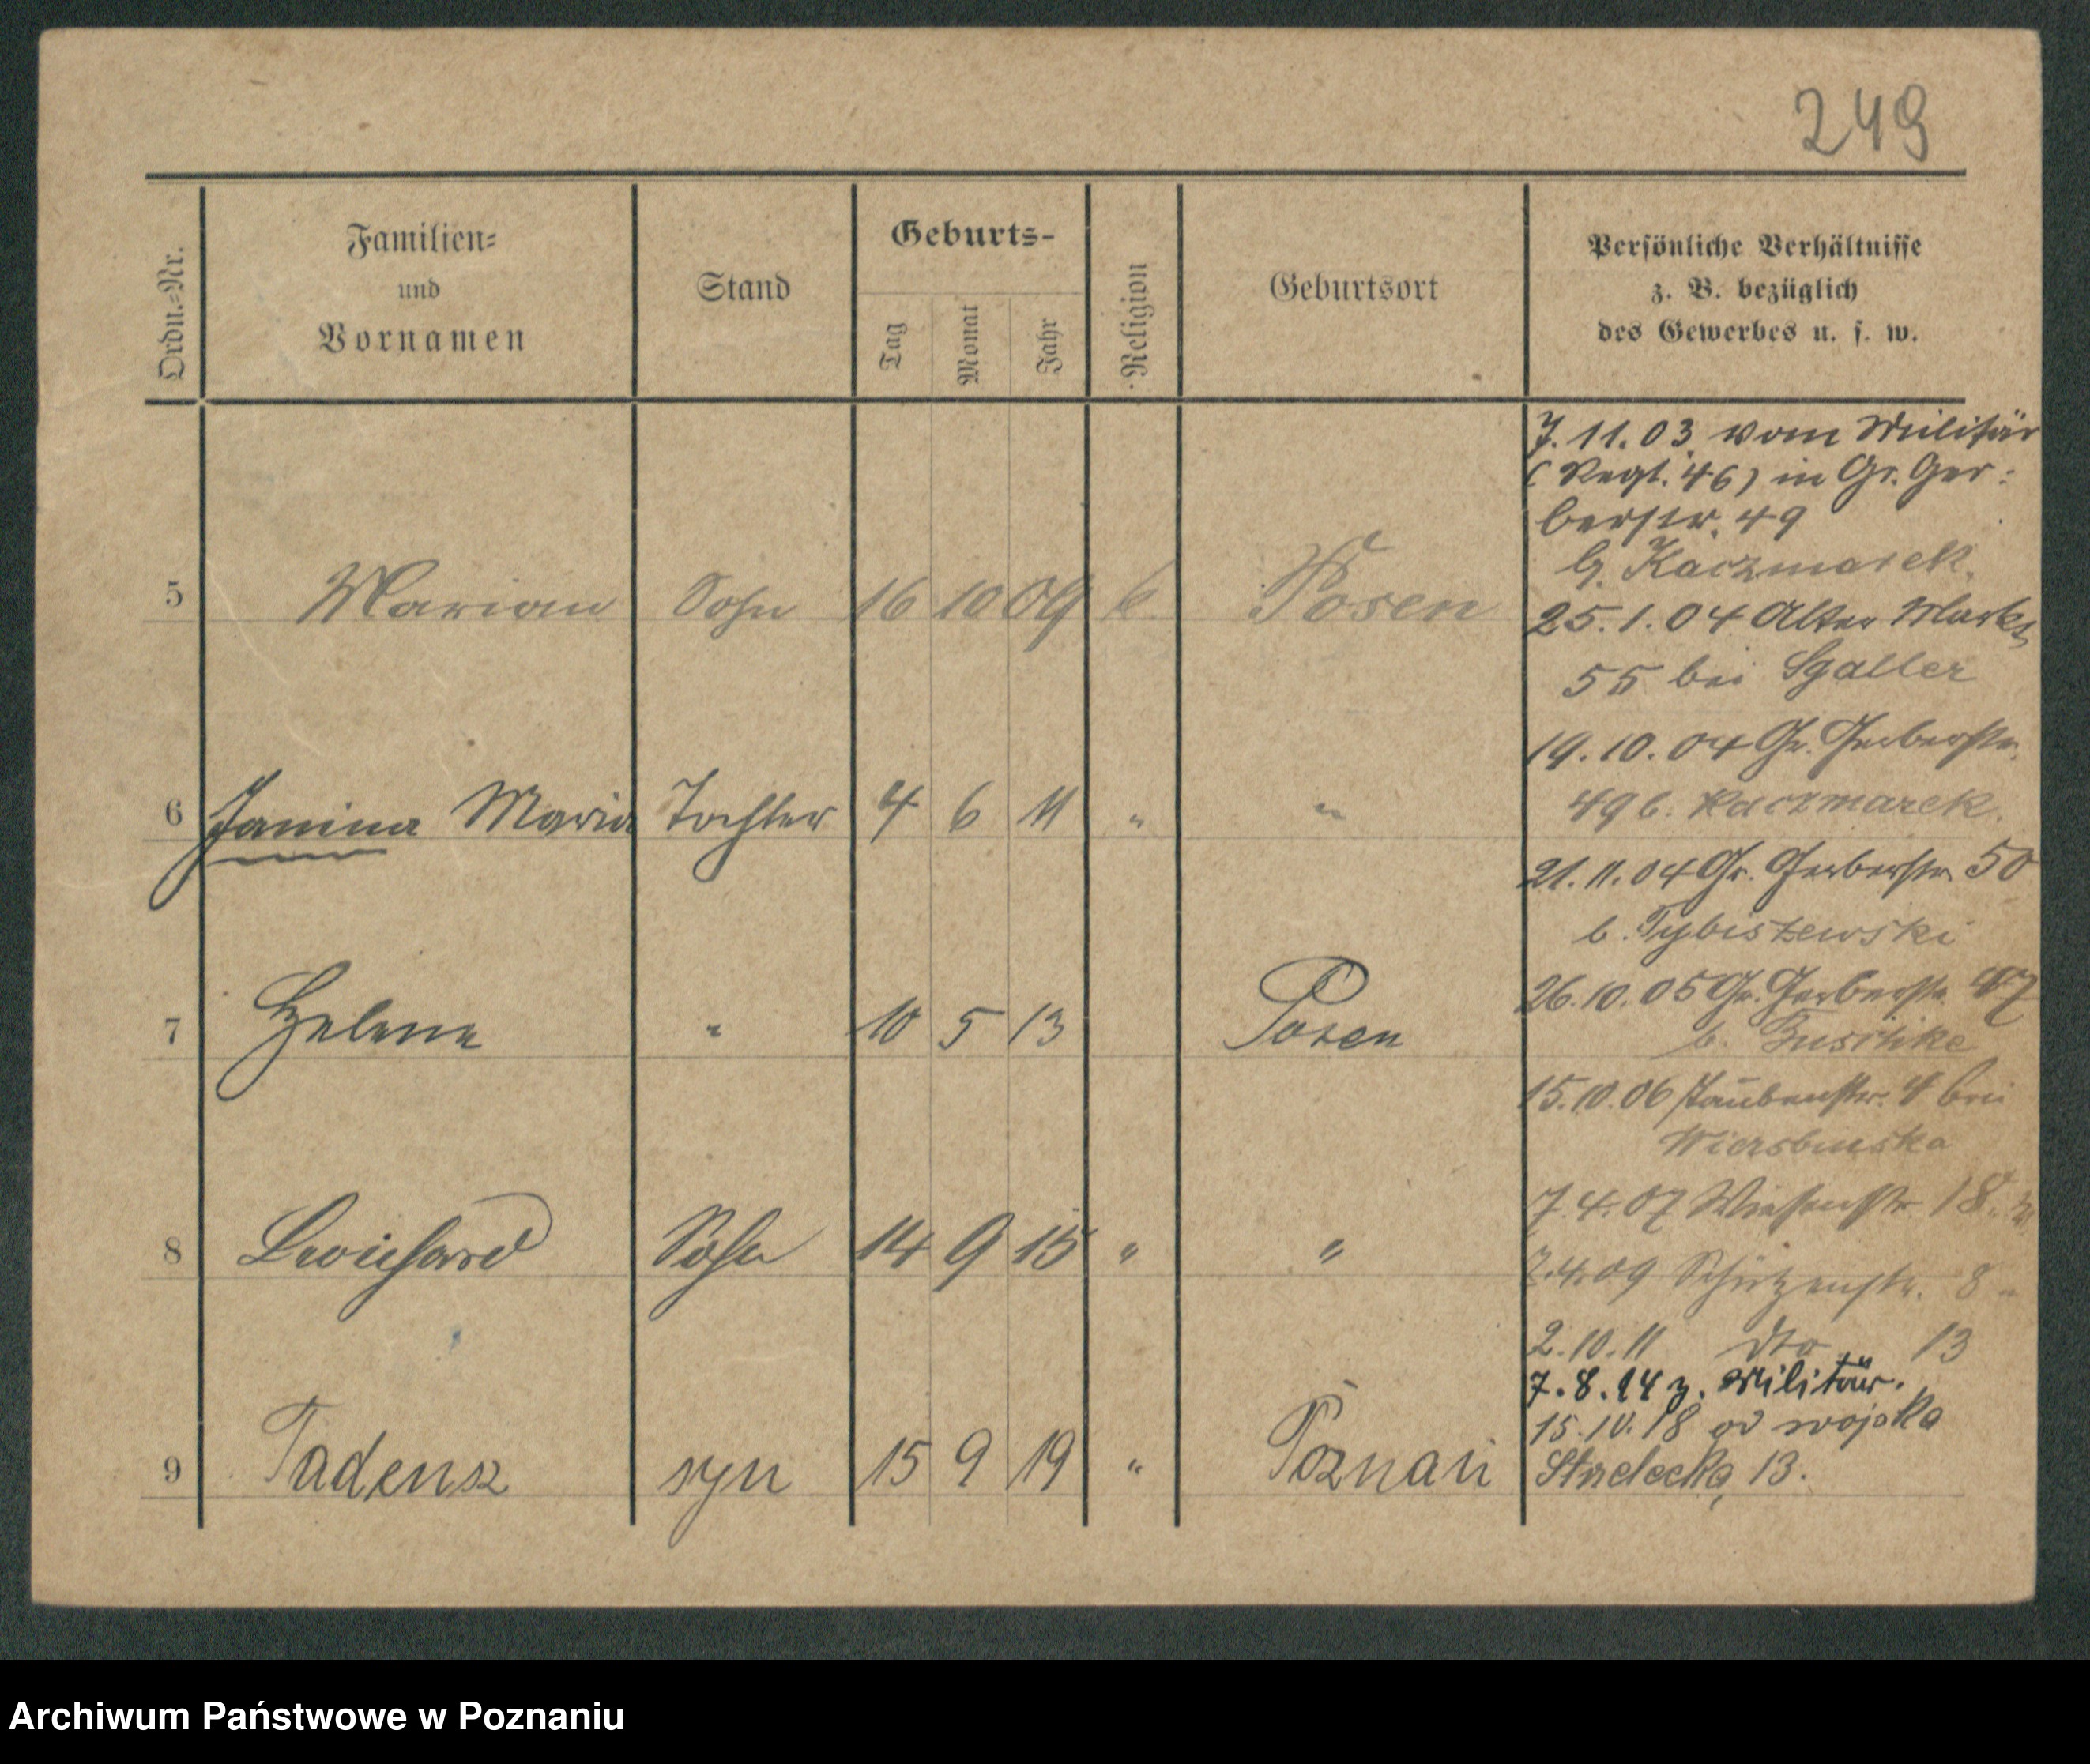 249
Ordn.-Nr.
Familien-
und
Vornamen
Stand
Geburts-
Tag
Monat
Jahr
Religion
Geburtsort
Persönliche Verhältnisse
z. B. bezüglich
des Gewerbes u. s. w.
5 Marian Sohn 16 10 09 k. Posen
6 Janina Maria Tochter 4 6 11 " "
7 Helene " 10 5 13 Posen
8 Leonhard Sohn 14 9 15 " "
9 Tadeusz syn 15 9 19 " Poznań
7.11.03 vom Militär
(Regt. 46) in Gr. Ger-
berstr. 49
b. Kaczmarek.
25.1.04 Alter Markt
55 bei Sgaller
19.10.04 Gr. Gerberstr.
49 b. Kaczmarek.
21.11.04 Gr. Gerberstr. 50
b. Tybiszewski
26.10.05 Gr. Gerberstr. 47
b.
15.10.06 Taubenstr. 4 bei
7.4.07 Wiesenstr. 18
7.4.09 Schützenstr. 8
2.10.11 dto 13
7.8.14 z. Militär.
15.10.18 od wojska
Strzelecka 13.
Archiwum Państwowe w Poznaniu